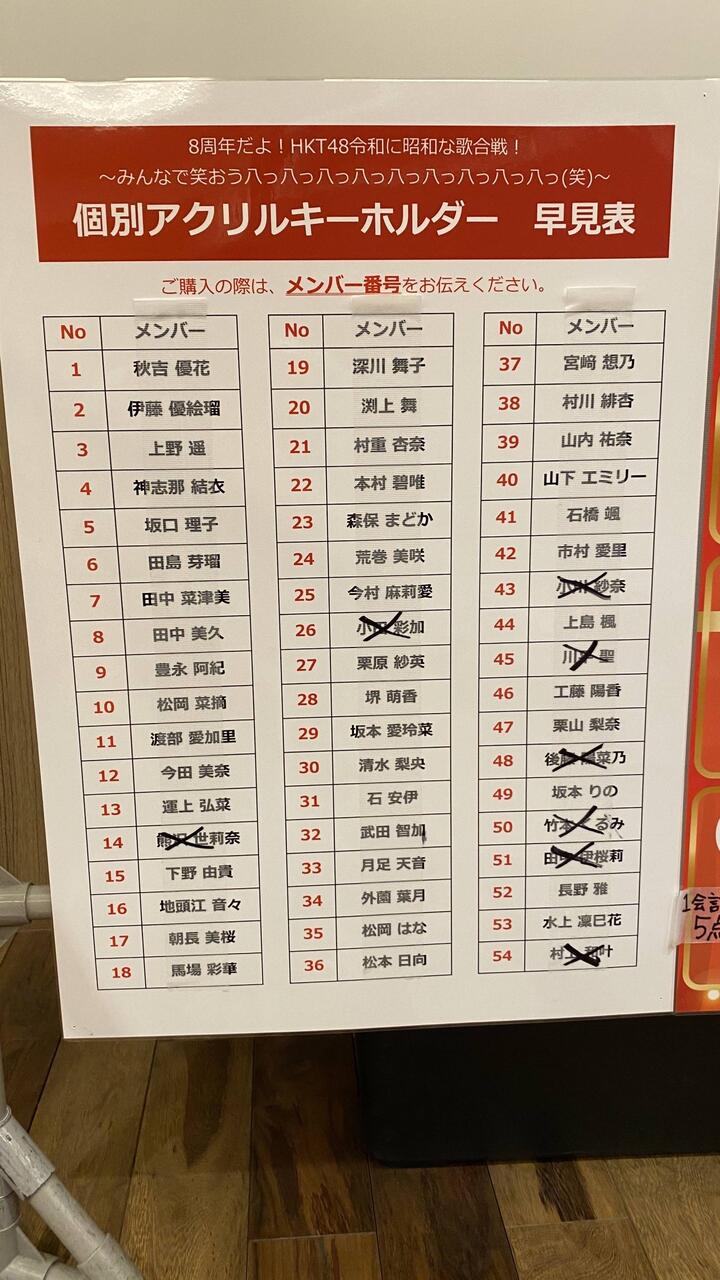 8周年だよ！HKT48令和に昭和な歌合戦！
～みんなで笑おう八っ八っ八っ八っ八っ八っ八っ八っ(笑)～
個別アクリルキーホルダー 早見表
ご購入の際は、メンバー番号をお伝えください。
No メンバー
1 秋吉 優花
2 伊藤 優絵瑠
3 上野 遥
4 神志那 結衣
5 坂口 理子
6 田島 芽瑠
7 田中 菜津美
8 田中 美久
9 豊永 阿紀
10 松岡 菜摘
11 渡部 愛加里
12 今田 美奈
13 運上 弘菜
14 熊沢 世莉奈
15 下野 由貴
16 地頭江 音々
17 朝長 美桜
18 馬場 彩華
No メンバー
19 深川 舞子
20 渕上 舞
21 村重 杏奈
22 本村 碧唯
23 森保 まどか
24 荒巻 美咲
25 今村 麻莉愛
26 小田 彩加
27 栗原 紗英
28 堺 萌香
29 坂本 愛玲菜
30 清水 梨央
31 石 安伊
32 武田 智加
33 月足 天音
34 外薗 葉月
35 松岡 はな
36 松本 日向
No メンバー
37 宮﨑 想乃
38 村川 緋杏
39 山内 祐奈
40 山下 エミリー
41 石橋 颯
42 市村 愛里
43 小川 紗奈
44 上島 楓
45 川平 聖
46 工藤 陽香
47 栗山 梨奈
48 後藤 陽菜乃
49 坂本 りの
50 竹本 くるみ
51 田中 伊桜莉
52 長野 雅
53 水上 凜巳花
54 村上 和叶
1会計
5点